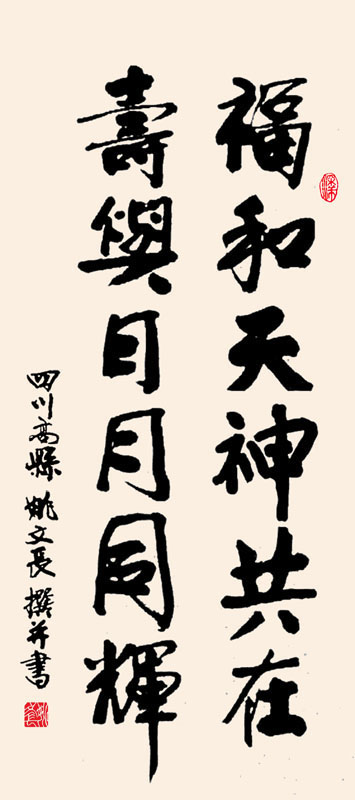 福和天神共在
壽與日月同輝
四川高縣姚文長撰並書